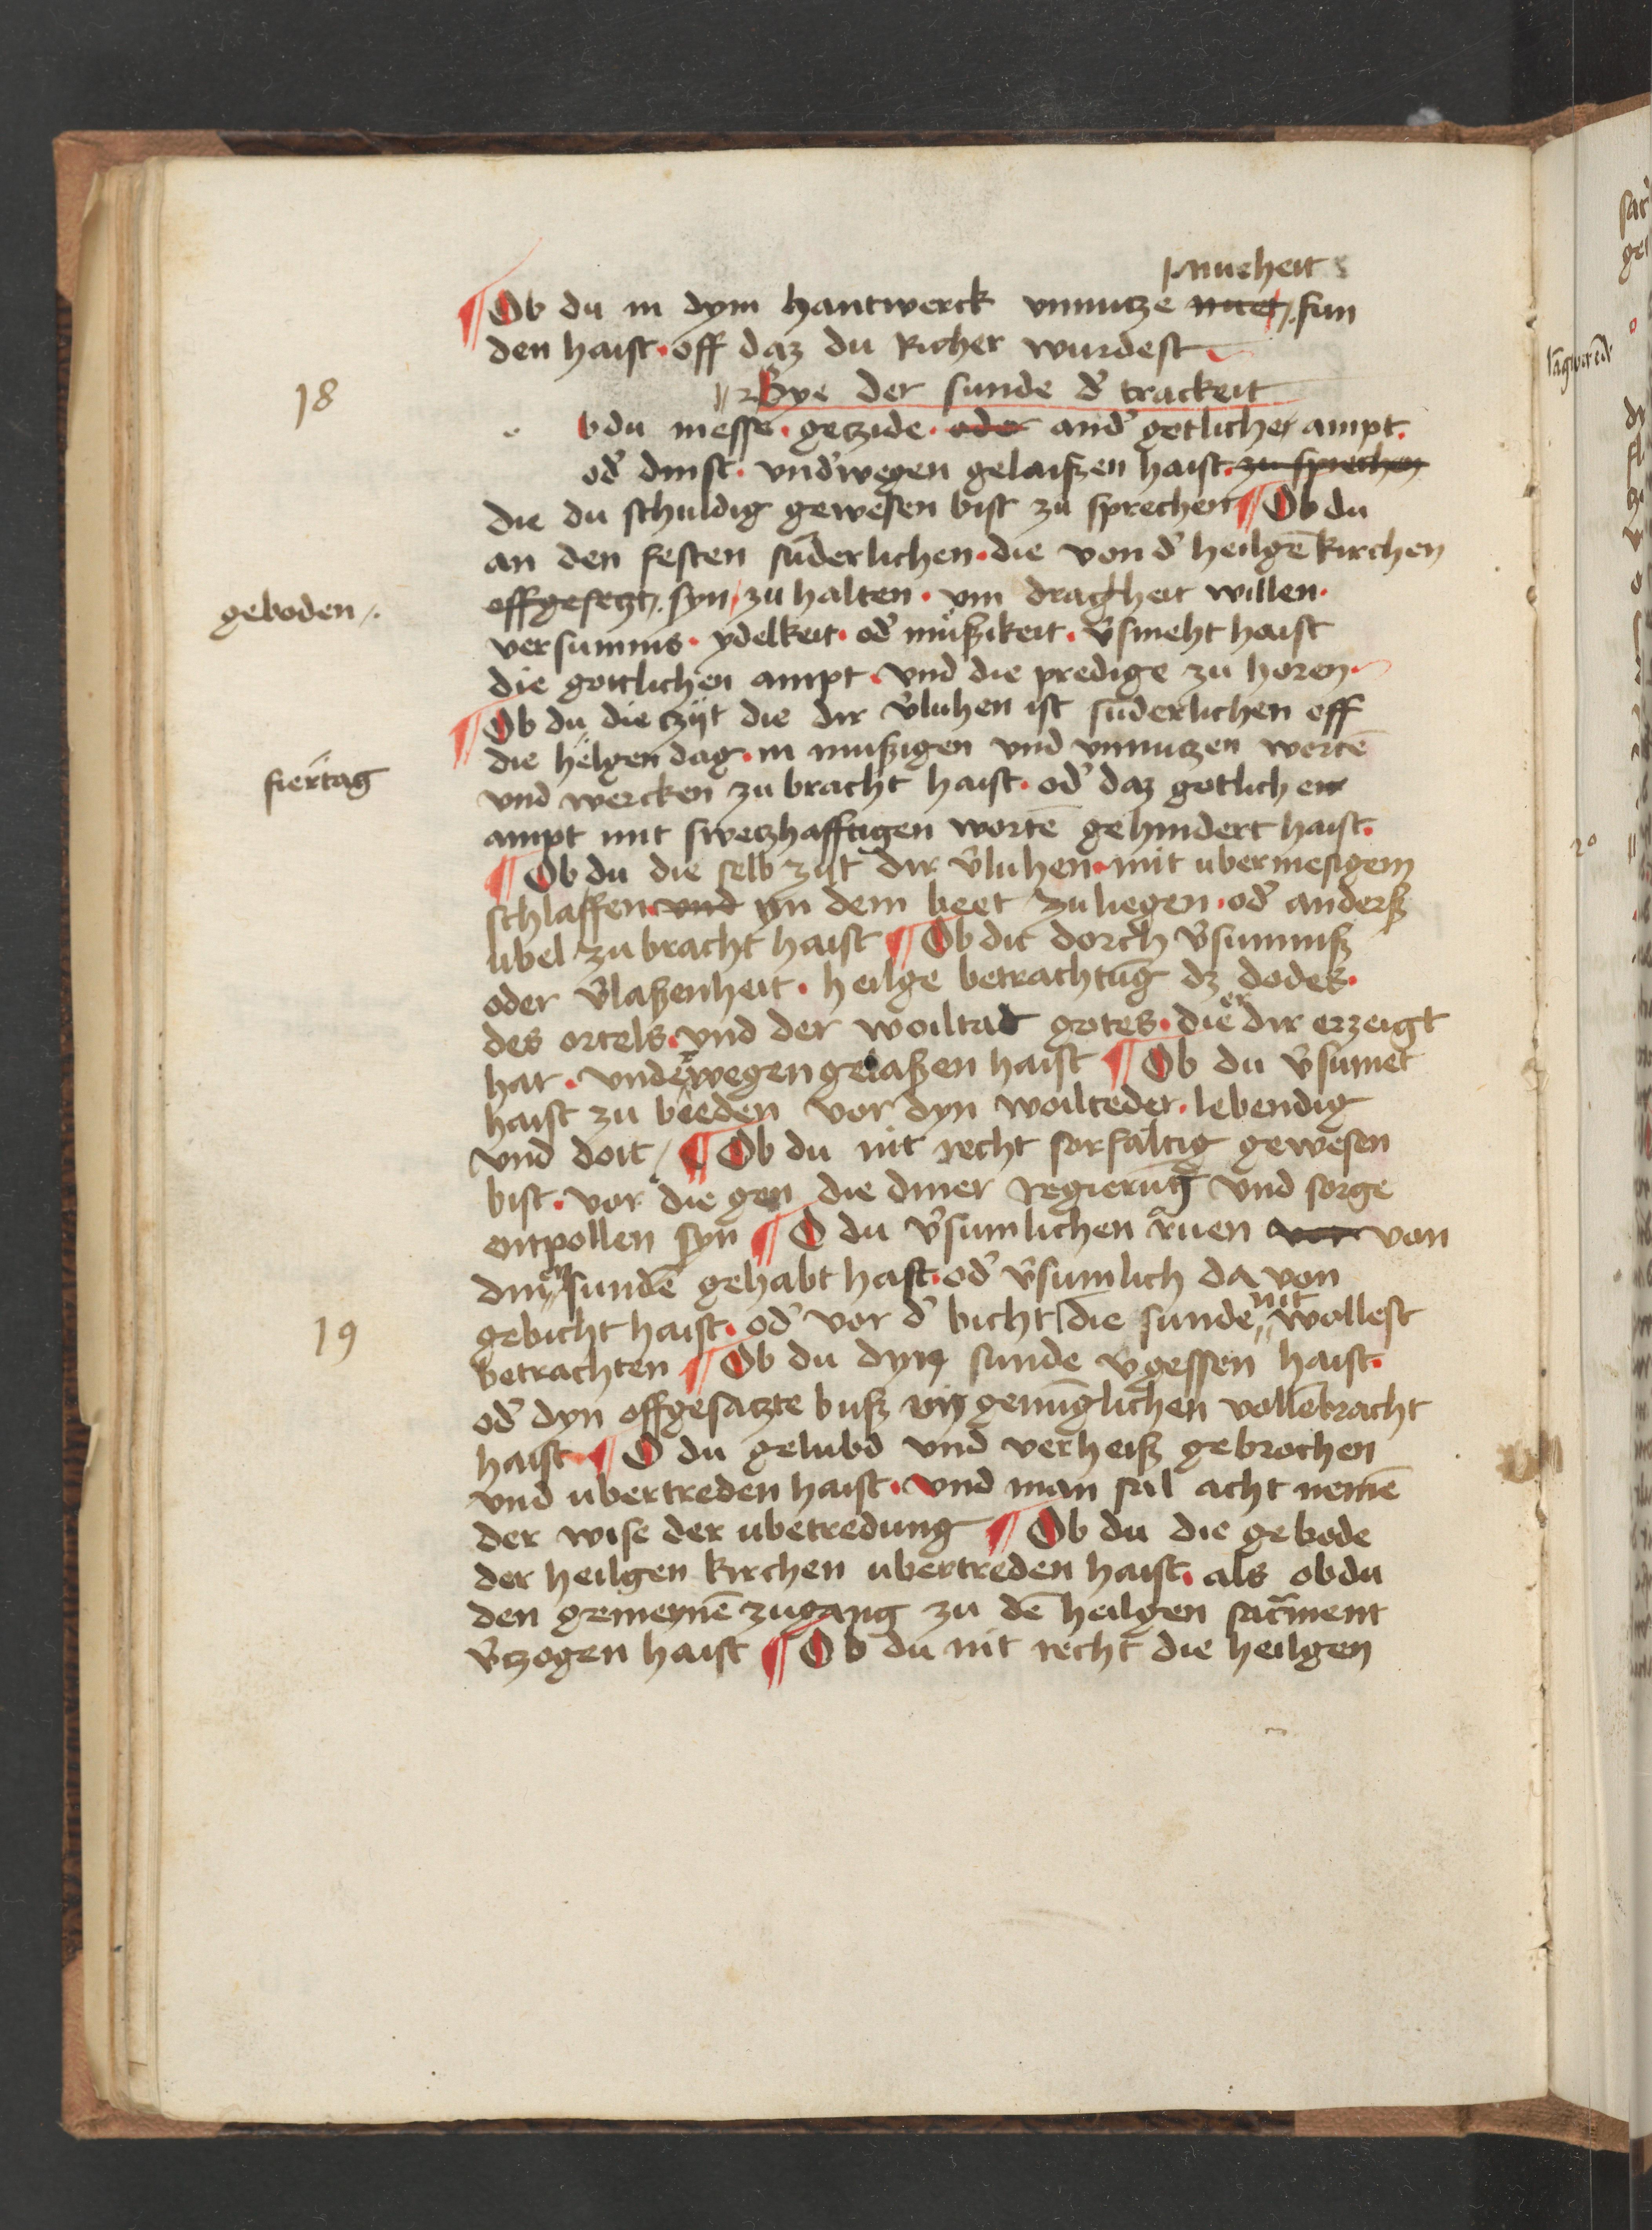 nueheit
¶ Ob du in dym hantwerck vnnutze nuet fun
den haist · off daz du Richer wurdest
18
Bye der sunde d̕ trackeit
o bdu messe · getzide · oder and̕ gotlicher ampt ·
od̕ dinst · vnd̕wegen gelaißen haist · zu sprechen
die du schuldig gewesen bist zu sprechen ¶ Ob du
an den festen sūderlichen · die von d̕ heilgē kirchen
geboden /.
offgesetzt · syn / zu halten · vm dragheit willen ·
versumnis · ydelkeit · od̕ mußikeit · v̕smeht haist
die gottlichen ampt · vnd die predige zu horen ·
¶ Ob du die tzijt die dir v̕luhen ist sūderlichen off
fiertag
die helgen dag · in mußigen vnd vnnutzen wortē
vnd wercken zu bracht haist · od̕ daz gotlichen
ampt mit swetzhafftigen wortē gehindert haist ·
¶ Ob du die selb zijt dir v̕luhen · mit ubermesigem
schlaffen · vnd yn dem beet zu liegen · od̕ anderß
ubel zu bracht haist ¶ Ob du dorch v̕sumniß
oder v̕laßenheit · heilge betrachtūg dz dodes ·
des ortels · vnd der woiltat gotes · die er dir erzeigt
hat · underwegen gelaßen haist ¶ Ob du v̕sumet
haist zu beeden vor dyn woilteder · lebendig
vnd doit / ¶ Ob du nit recht sorfaltig gewesen
bist · vor die gen die diner regierūg vnd sorge
entpollen syn ¶ O du v̕sumlichen ruen vor von
dinen sundē gehabt hast · od̕ v̕sumlich da von
19
gebicht haist · od̕ vor d̕ bicht die sunde nit wollest
betrachten ¶ Ob du dyn sunde v̕gessen haist ·
od̕ dyn offgesatzte buß nit genuglichen vollēbracht
haist ¶ O du gelubd vnd verheiß gebrochen
vnd ubertreden haist · vnd man sal acht nemē
der wise der ubetredung ¶ Ob du die gebode
der heilgen kirchen ubertreden haist · als ob du
den gemeynē zugang zu dē heilgen sacrment
v̕tzogen haist ¶ Ob du nit recht die heilgen
20